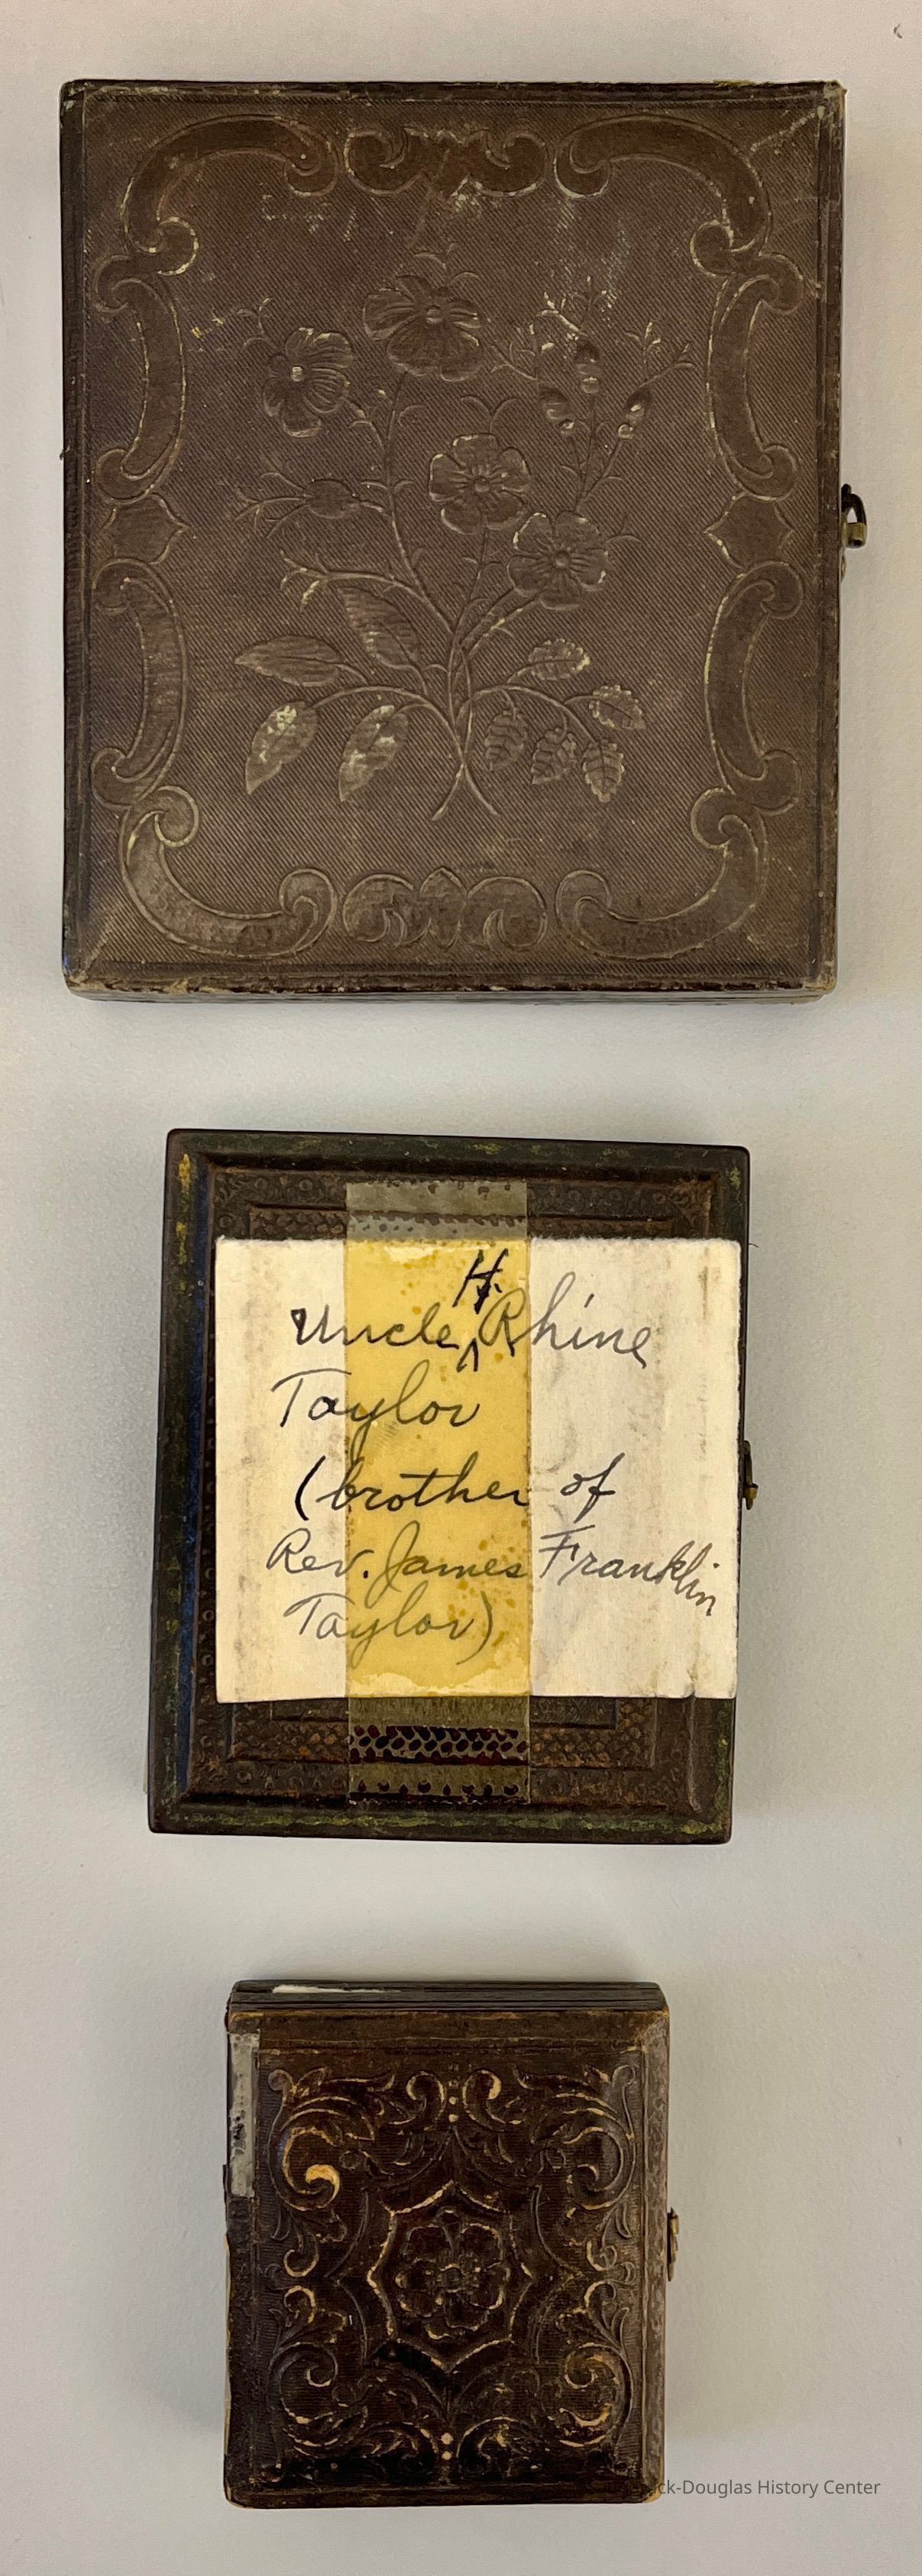 Uncle H. Rhine
Taylor
(brother of
Rev. James Franklin
Taylor)
-Douglas History Center